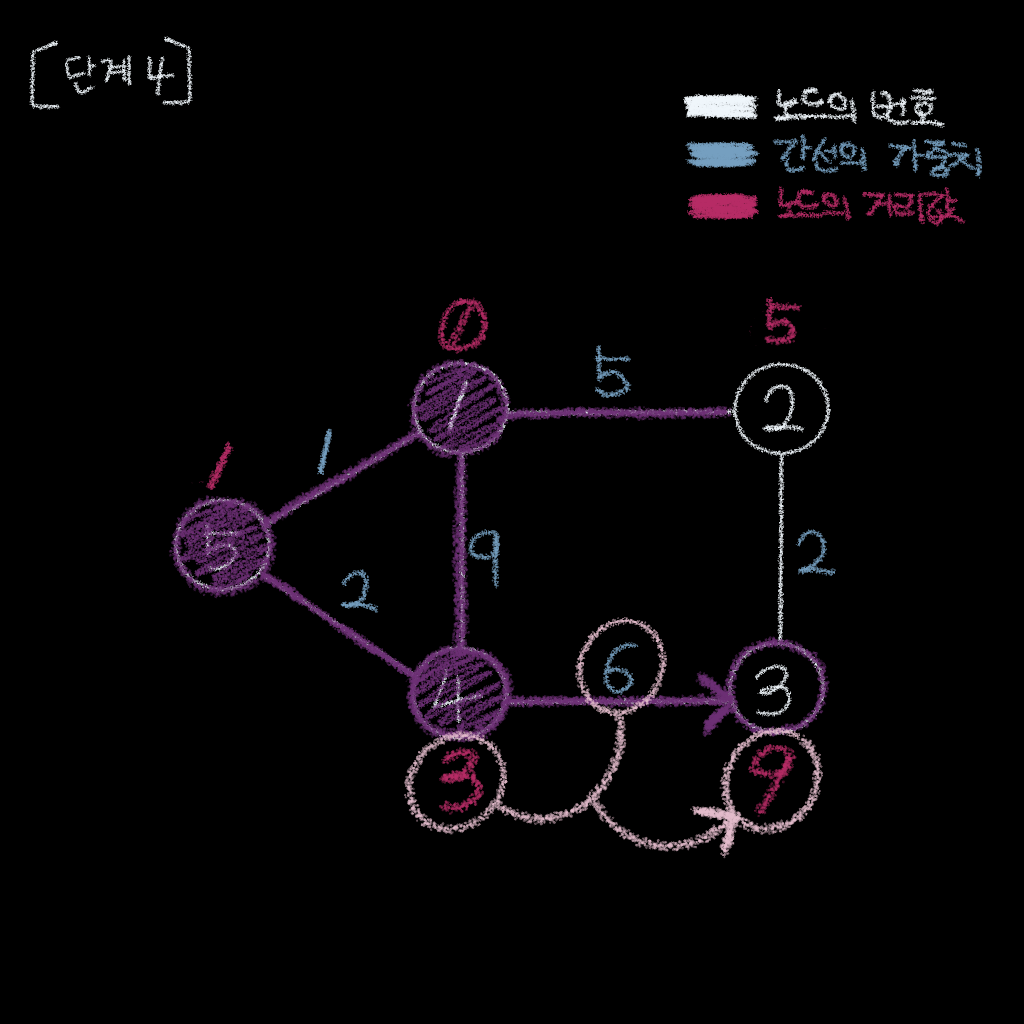 [단계 4]
노드의 번호
간선의 가중치
노드의 거리값
0
5
5
1
2
1
1
5
9
2
2
4
6
3
3
9